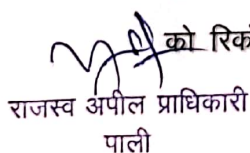 को रिक
राजस्व अपील प्राधिकारी
पाली